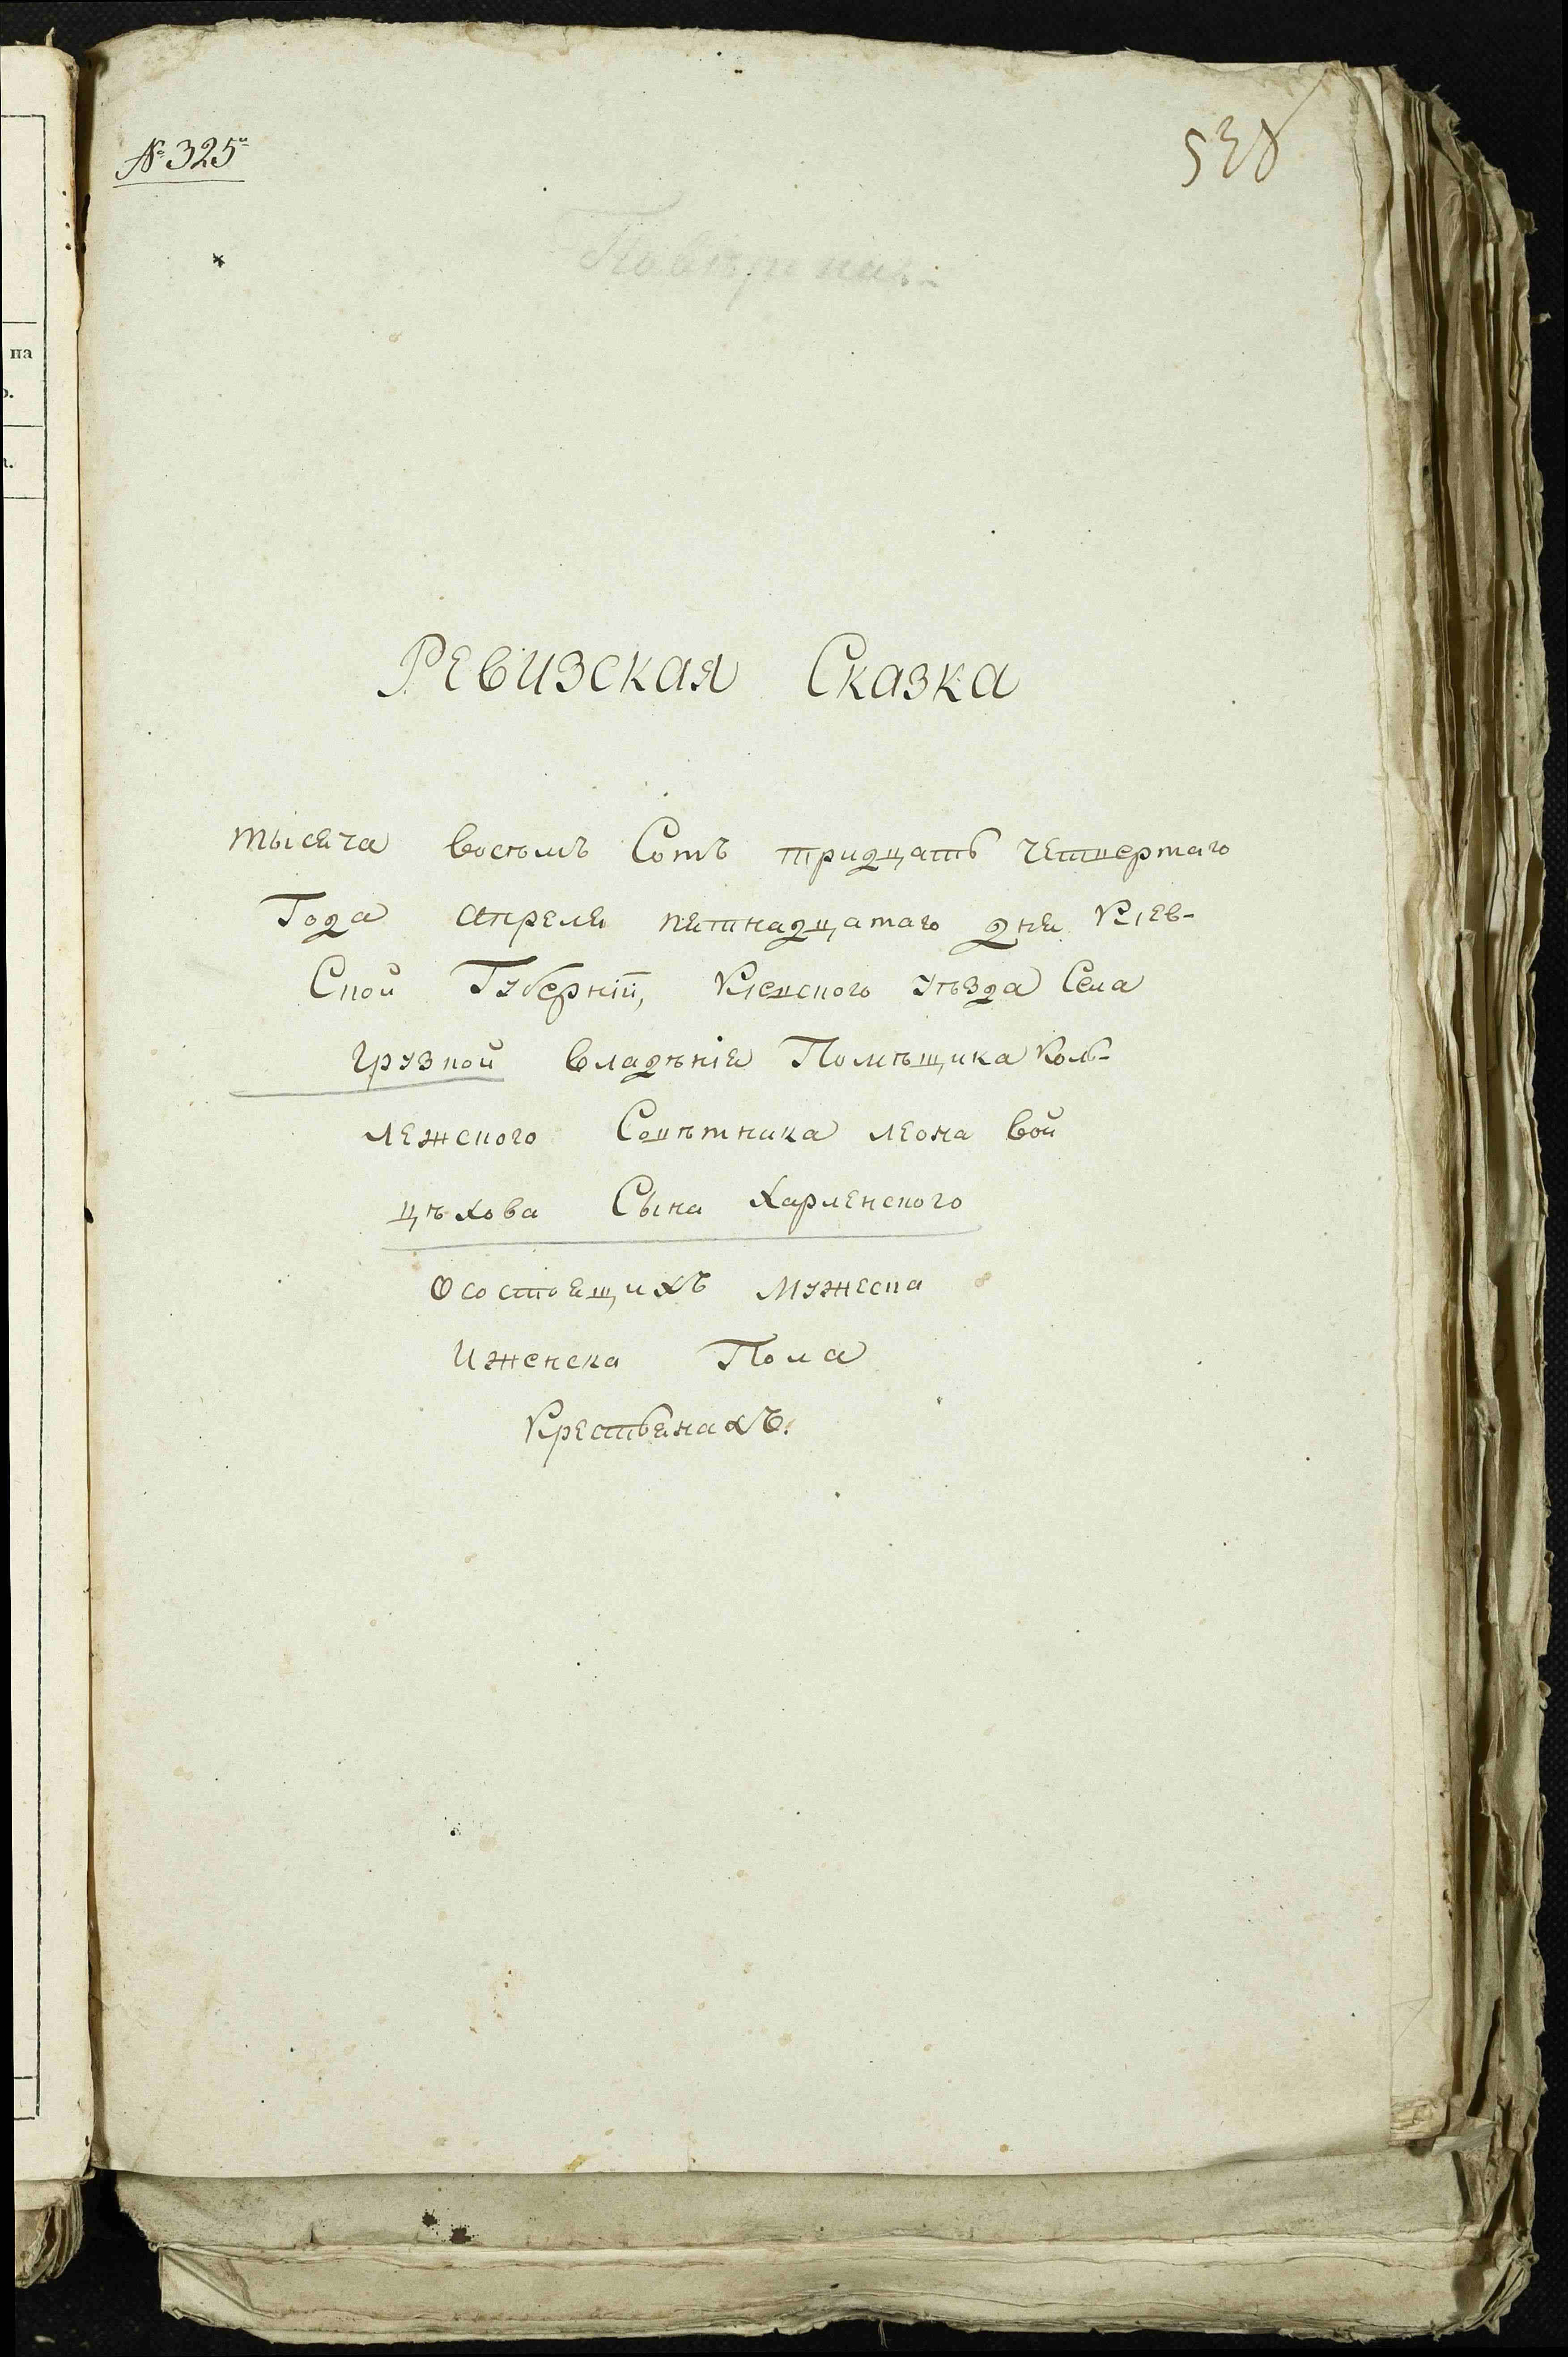 № 325й
538
Ревизская Сказка
тысяча восемъ Сотъ тридцать четвертаго
Года апреля пятнадцатаго дня Кіев-
Ской Губерніи, Кіевского уѣзда Села
Грузкой владѣнія Помѣщика Коль-
лежского Совѣтника леона вой
цѣхова Сына Харленского
О состоящихъ мужеска
И женска Пола
Крестьянахъ.
на